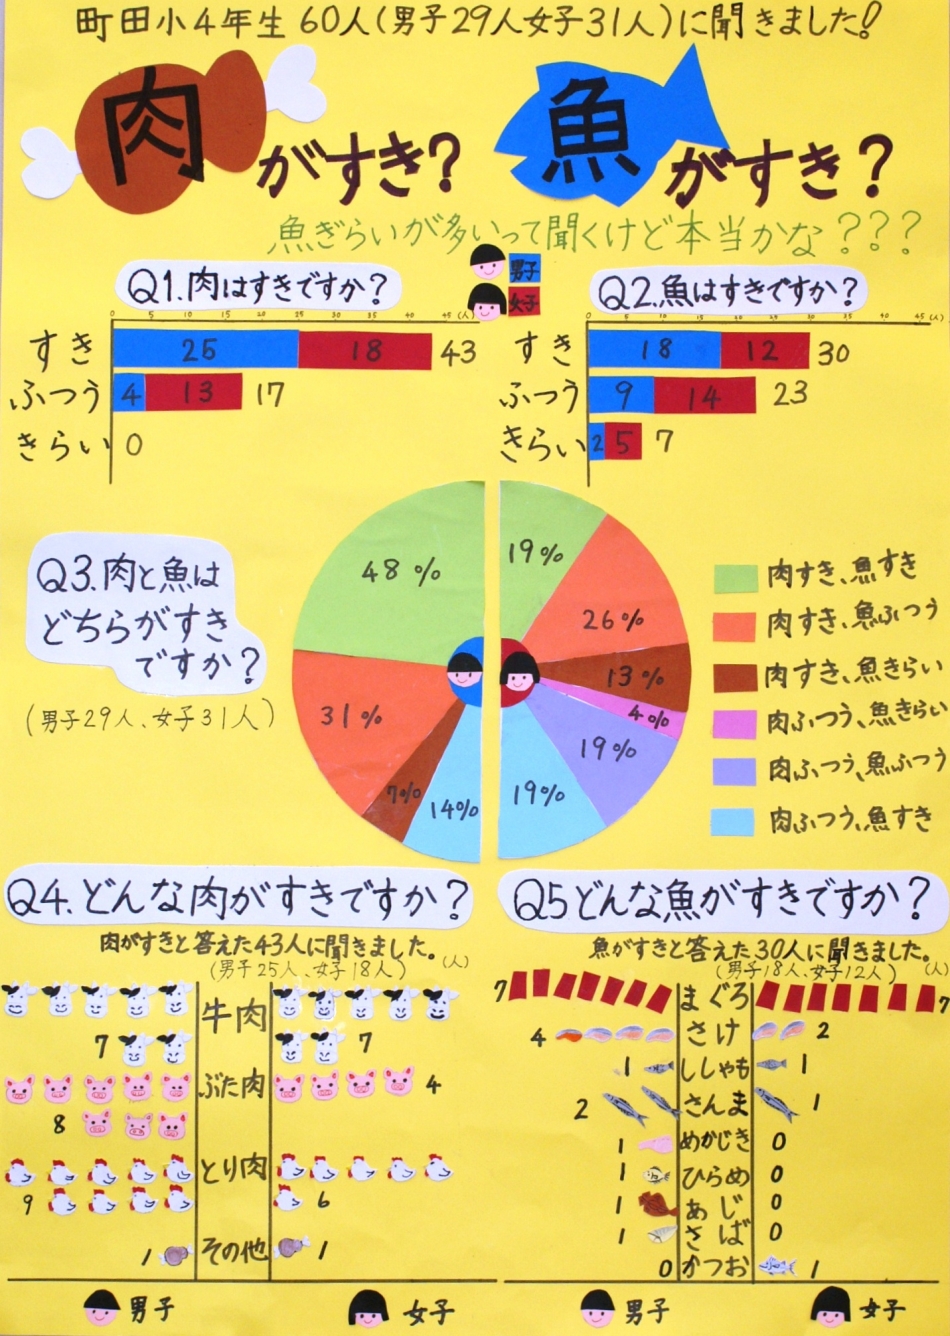 町田小4年生60人(男子29人女子31人)に聞きました!
肉がすき?
魚がすき?
魚ぎらいが多いって聞くけど本当かな???
Q1.肉はすきですか?
男子
女子
Q2.魚はすきですか?
0 5 10 15 20 25 30 35 40 45 (人)
すき 25 18 43
ふつう 4 13 17
きらい 0
0 5 10 15 20 25 30 35 40 45 (人)
すき 18 12 30
ふつう 9 14 23
きらい 2 5 7
Q3.肉と魚は
どちらがすき
ですか?
(男子29人、女子31人)
48%
31%
7%
14%
19%
26%
13%
4%
19%
19%
肉すき、魚すき
肉すき、魚ふつう
肉すき、魚きらい
肉ふつう、魚きらい
肉ふつう、魚ふつう
肉ふつう、魚すき
Q4.どんな肉がすきですか?
肉がすきと答えた43人に聞きました。
(男子25人、女子18人)
(人)
7 牛肉 7
8 ぶた肉 4
9 とり肉 6
1 その他 1
男子 女子
Q5どんな魚がすきですか?
魚がすきと答えた30人に聞きました。
(男子18人、女子12人)
(人)
7 まぐろ 7
4 さけ 2
1 ししゃも 1
2 さんま 1
1 めかじき 0
1 ひらめ 0
1 あじ 0
1 さば 0
0 かつお 1
男子 女子